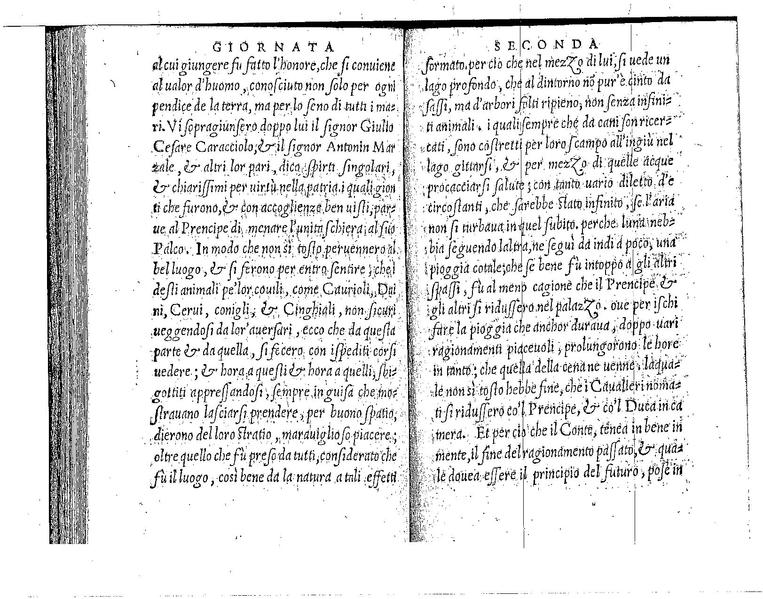 GIORNATA
al cui giungere fu fatto l'honore, che si conuiene
al ualor d'huomo, conosciuto non solo per ogni
pendice de la terra, ma per lo seno di tutti i ma-
ri. Vi sopragiunsero doppo lui il signor Giulio
Cesare Caracciolo, & il signor Antonin Mar
zale, & altri lor pari, dico spirti singolari,
& chiarissimi per uirtù nella patria. i quali gion
ti che furono, & con accoglienze ben uisti, par-
ue al Prencipe di menare l'unita schiera al suo
Palco. In modo che non sì tosto peruennero al
bel luogo, & si ferono per entro sentire; che i
desti animali pe'lor couili, come Caurioli, Dai
ni, Cerui, conigli, & Cinghiali, non sicuri
ueggendosi da lor'auersari, ecco che da questa
parte & da quella, si fecero con ispediti corsi
uedere; & hora a questi & hora a quelli, sbi-
gottiti appressandosi, sempre in guisa che mo-
strauano lasciarsi prendere, per buono spatio,
dierono del loro stratio, marauiglioso piacere;
oltre quello che fù preso da tutti, considerato che
fù il luogo, così bene da la natura a tali effetti
SECONDA
formato. per ciò che nel mezzo di lui, si uede un
lago profondo, che al dintorno nō pur'è cinto da
sassi, ma d'arbori folti ripieno, non senza infini-
ti animali. i quali sempre che da cani son ricer-
cati, sono costretti per loro scampo all'ingiù nel
lago gittarsi, & per mezzo di quelle acque
procacciarsi salute; con tanto uario diletto d'e
circostanti, che sarebbe stato infinito, se l'aria
non si turbaua in quel subito. perche l'una neb-
bia seguendo l'altra, ne seguì da indi a poco, una
pioggia cotale; che se bene fù intoppo a gli altri
spassi, fù al meno cagione che il Prencipe &
gli altri si ridussero nel palazzo. oue per ischi
fare la pioggia che anchor duraua, doppo uari
ragionamenti piaceuoli, prolungorono le hore
in tanto; che quella della cena ne uenne. laqua-
le non sì tosto hebbe fine, che i Caualieri noma-
ti si ridussero co'l Prencipe, & co'l Duca in ca
mera. Et per ciò che il Conte, tenea in bene in
mente, il fine del ragionamento passato, & qua-
le douea essere il principio del futuro, pose in